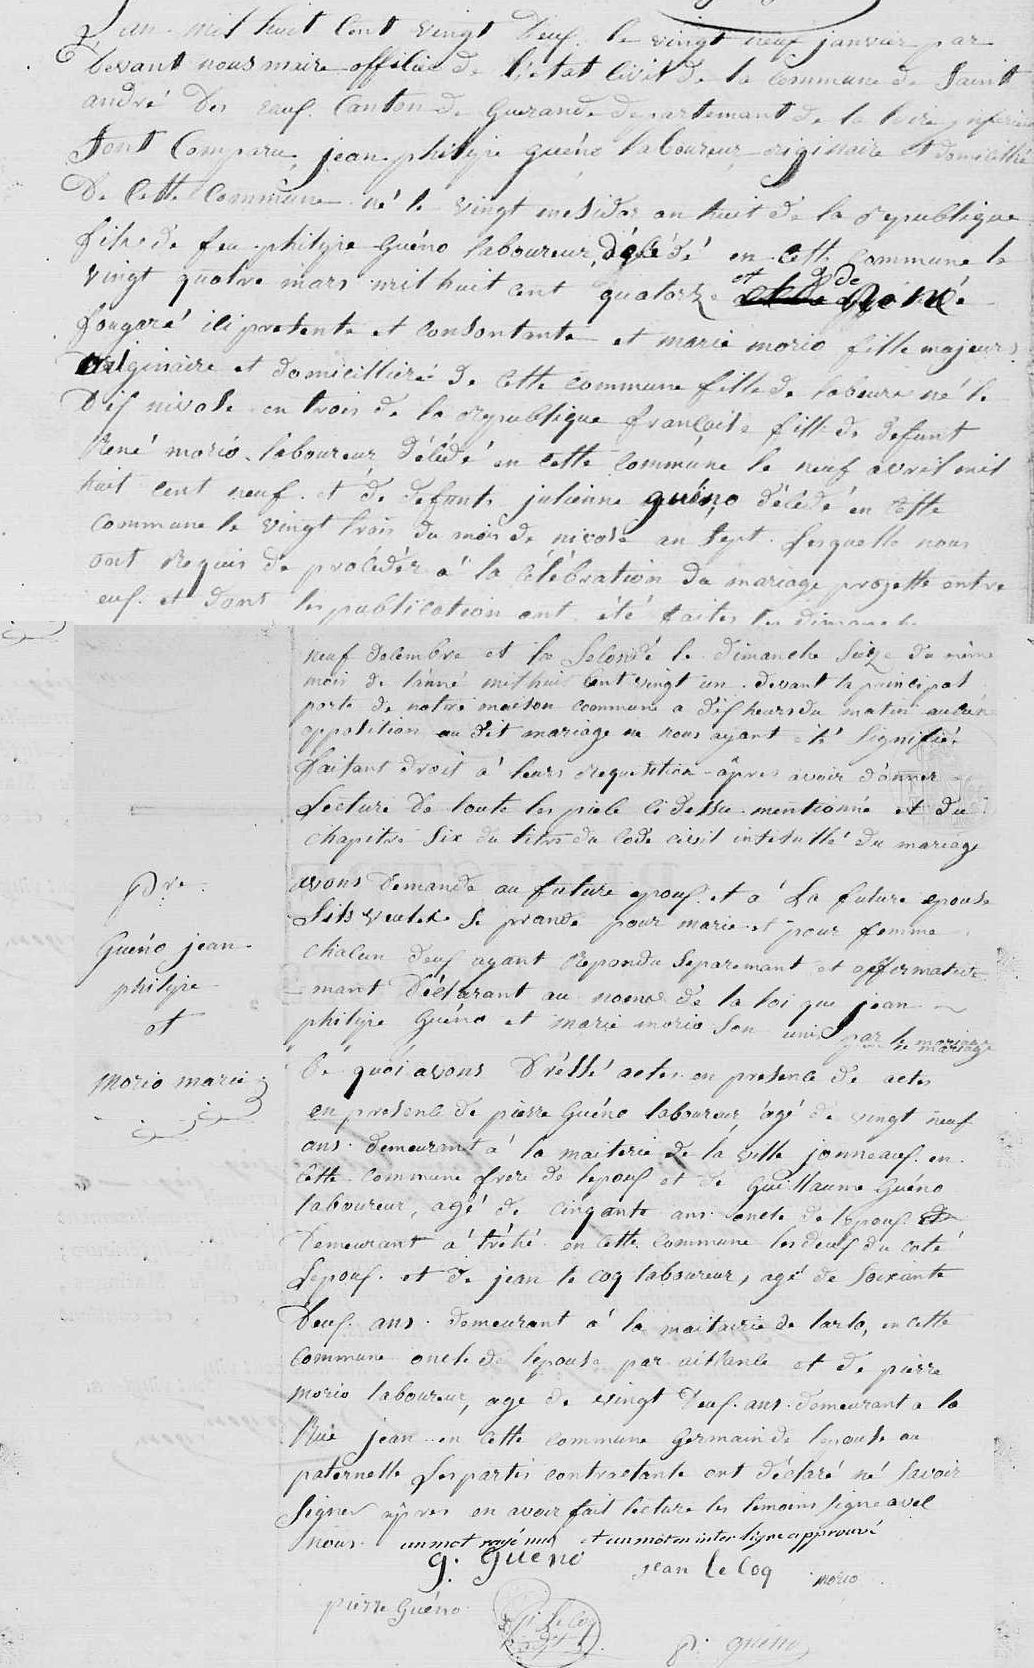 L'an mil huit Cent vingt deuf le vingt neuf janvier par
Devant nous maire officiée de l'état Civil de la Commune de Saint
andré Des eauf Canton de Guerande departement de la loire inferieu
Sont Comparu jean philype guéno laboureur originaire et domicillié
De Cette Commune né le vingt mesidor an huit de la republique
fils de feu philype Guéno laboureur, décédé en Cette Commune le
vingt quatre mars mil huit cent quatorze et de
fougaré ici presente et consentante et marie morio fille majeure
originaire et domicilliée de Cette Commune fille de labeure né le
Dif nivose en trois de la republique française fille de defunt
René morio laboureur décédé en Cette Commune le neuf avril mil
huit cent neuf et de defunte julienne guéno décédé en Cette
Commune le vingt trois du mois de nivose an Sept Lesquelle nous
ont requis de procéder a la Célébration du mariage projette entre
euf et dont les publication ont été faites les dimanche
neuf decembre et la Seconde le dimanche Seize du même
mois de l'anné mil huit Cent vingt un devant la principal
porte de notre maison Commune a dif heurs du matin aucune
opposition au dit mariage ne nous ayant été Signifiée
faisant droit a leurs requisition âpres avoir donner
Lecture De toute les piece Cidessu mentionné et du
Chapitre Six du titre du Code Civil intitullé du mariage
avons demandé au future epouf et a La future epouse
Sils veulet Se prande pour marie et pour femme
Chacun deuf ayant repondu Separemant et affirmative
mant Déclarant au nome de la loi que jean
philype Guéno et marie morio Son unis par le mariage
De quoi avons Dréssé actes en presence de actes
en presence de pierre Guéno laboureur, âgé de vingt neuf
ans demeurant a la maiterie de la ville jonneauf en
Cette Commune frere de lepouf et de Guillaume Guéno
laboureur, agé de cinqante ans oncle de lepouf
Demeurant a tréhé en Cette Commune les deuf du coté
Lepouf et de jean le Coq laboureur, agé de Soixante
Deuf ans demeurant a la maitairie de larlo, en Cette
Commune oncle de lépouse par aillance et de pierre
morio laboureur, age de vingt deuf ans demeurant a la
Rue jean en Cette Commune Germain de lepouse au
paternelle Les partis contractante ont déclaré né Savoir
Signer âpres en avoir fait lecture les temoins Signe avec
nous un mot rayé nul et un mot en interligne approuvé
pre.
Guéno jean
philype
et
morio marie
g. Guéno
jean le Coq
morio
pierre Guéno
p. guéno